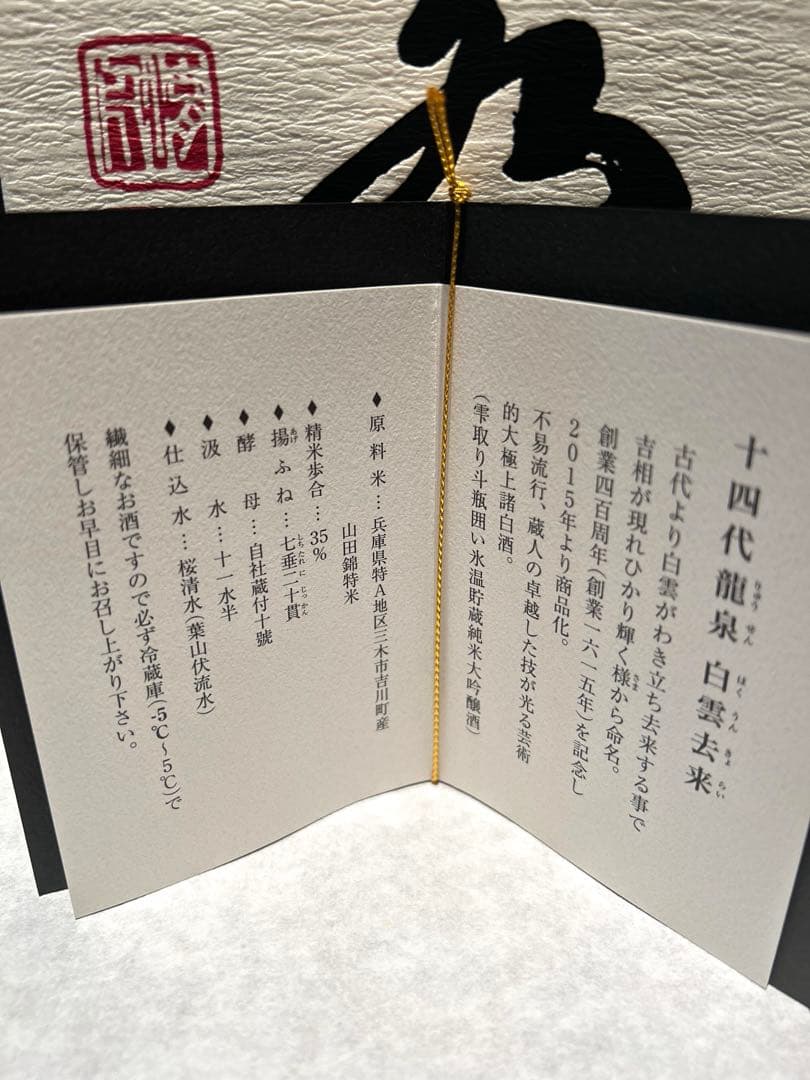 十四代龍泉 白雲去来
りゅう せん はく うん きょ らい
古代より白雲がわき立ち去来する事で
吉相が現れひかり輝く様から命名。
さま
創業四百周年(創業一六一五年)を記念し
2015年より商品化。
不易流行、蔵人の卓越した技が光る芸術
的大極上諸白酒。
(雫取り斗瓶囲い氷温貯蔵純米大吟醸酒)
♦原料米…兵庫県特A地区三木市吉川町産
山田錦特米
♦精米歩合…35%
♦揚ふね…七垂二十貫
あげ しちたれ に じっかん
♦酵母…自社蔵付十號
♦汲水…十一水半
♦仕込水…桜清水(葉山伏流水)
繊細なお酒ですので必ず冷蔵庫(-5℃〜5℃)で
保管しお早目にお召し上がり下さい。